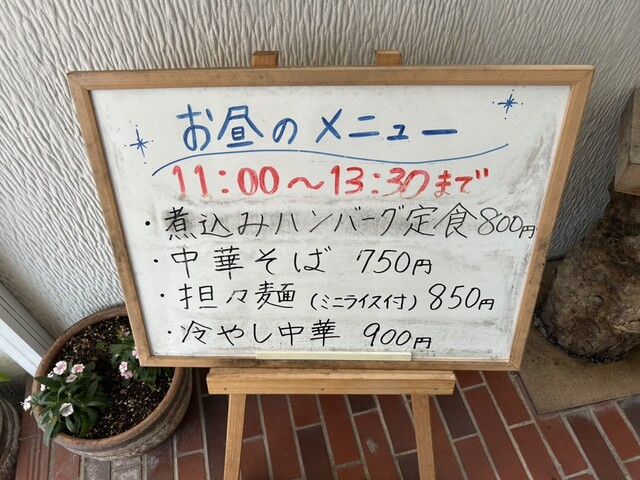 お昼のメニュー
11:00～13:30まで
・煮込みハンバーグ定食800円
・中華そば 750円
・担々麺(ミニライス付)850円
・冷やし中華 900円